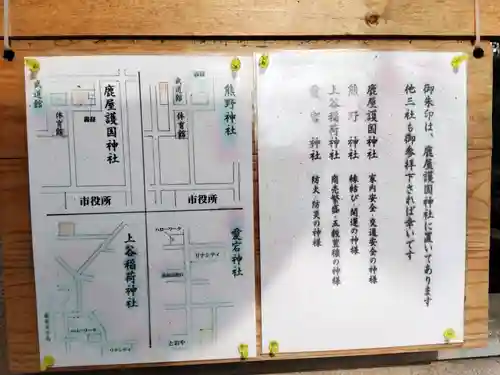 御朱印は、鹿屋護国神社に置いてあります
他三社も御参拝下されば幸いです
鹿屋護国神社 家内安全・交通安全の神様
熊野神社 縁結び・開運の神様
上谷稲荷神社 商売繁盛・五穀豊穣の神様
愛宕神社 防火・防災の神様
熊野神社
武道館
体育館
市役所
鹿屋護国神社
武道館
体育館
市役所
愛宕神社
ハローワーク
リナシティ
とおや
上谷稲荷神社
ハローワーク
リナシティ